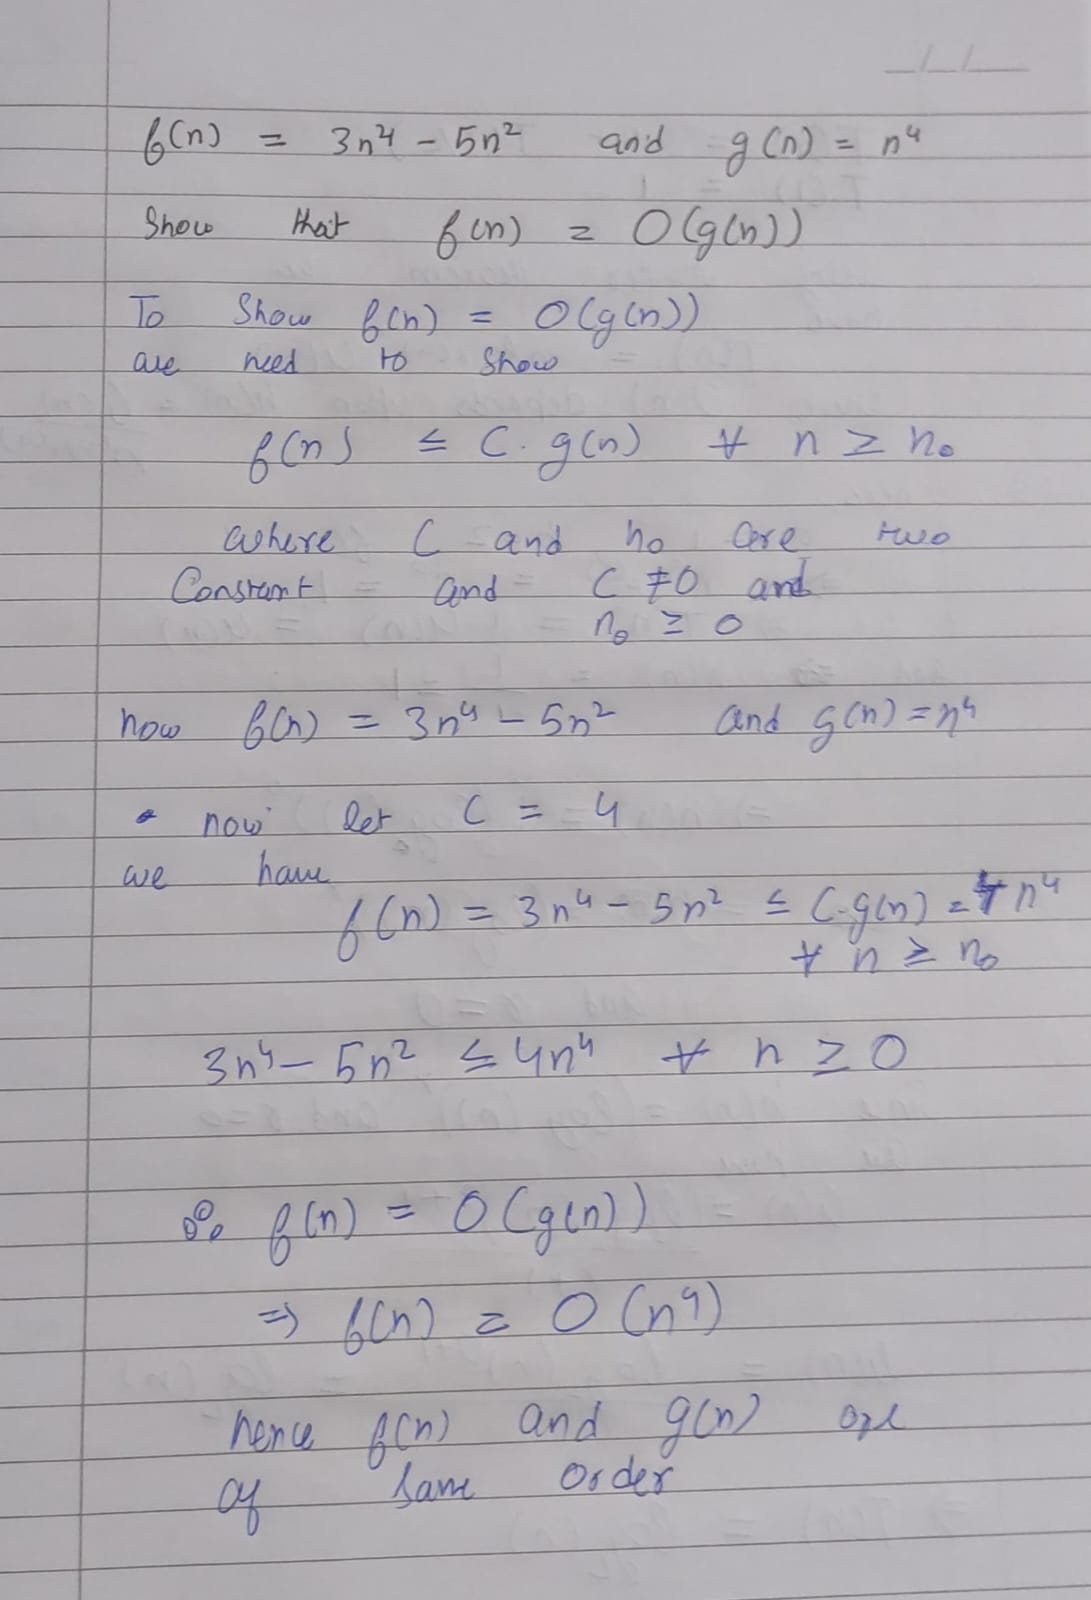 f(n) = 3n⁴ - 5n² and g(n) = n⁴
Show that f(n) = O(g(n))
To Show f(n) = O(g(n))
we need to show
f(n) ≤ C. g(n) ∀ n ≥ n₀
where C and n₀ are two
Constant and C ≠ 0 and
n₀ ≥ 0
now f(n) = 3n⁴ - 5n² and g(n) = n⁴
• now let C = 4
we have
f(n) = 3n⁴ - 5n² ≤ C.g(n) = 4n⁴
∀ n ≥ n₀
3n⁴ - 5n² ≤ 4n⁴ ∀ n ≥ 0
∴ f(n) = O(g(n))
⇒ f(n) = O(n⁴)
hence f(n) and g(n) are
of same order